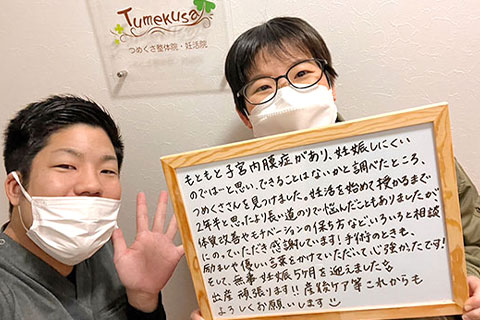 Tumekusa
つめくさ整体院・妊活院
もともと子宮内膜症があり、妊娠しにくい
のではーと思い、できることはないかと調べたところ、
つめくさんを見つけました。妊活を始めて授かるまで
2年半と思ったより長い道のりで悩んだこともありましたが
体質改善やモチベーションの保ち方などいろいろと相談
にのっていただき感謝しています!手術のときも、
励ましや優しい言葉をかけていただいて心強かったです!
そして、無事妊娠5ヶ月を迎えました
出産頑張ります!!産後ケア等これからも
よろしくお願いします